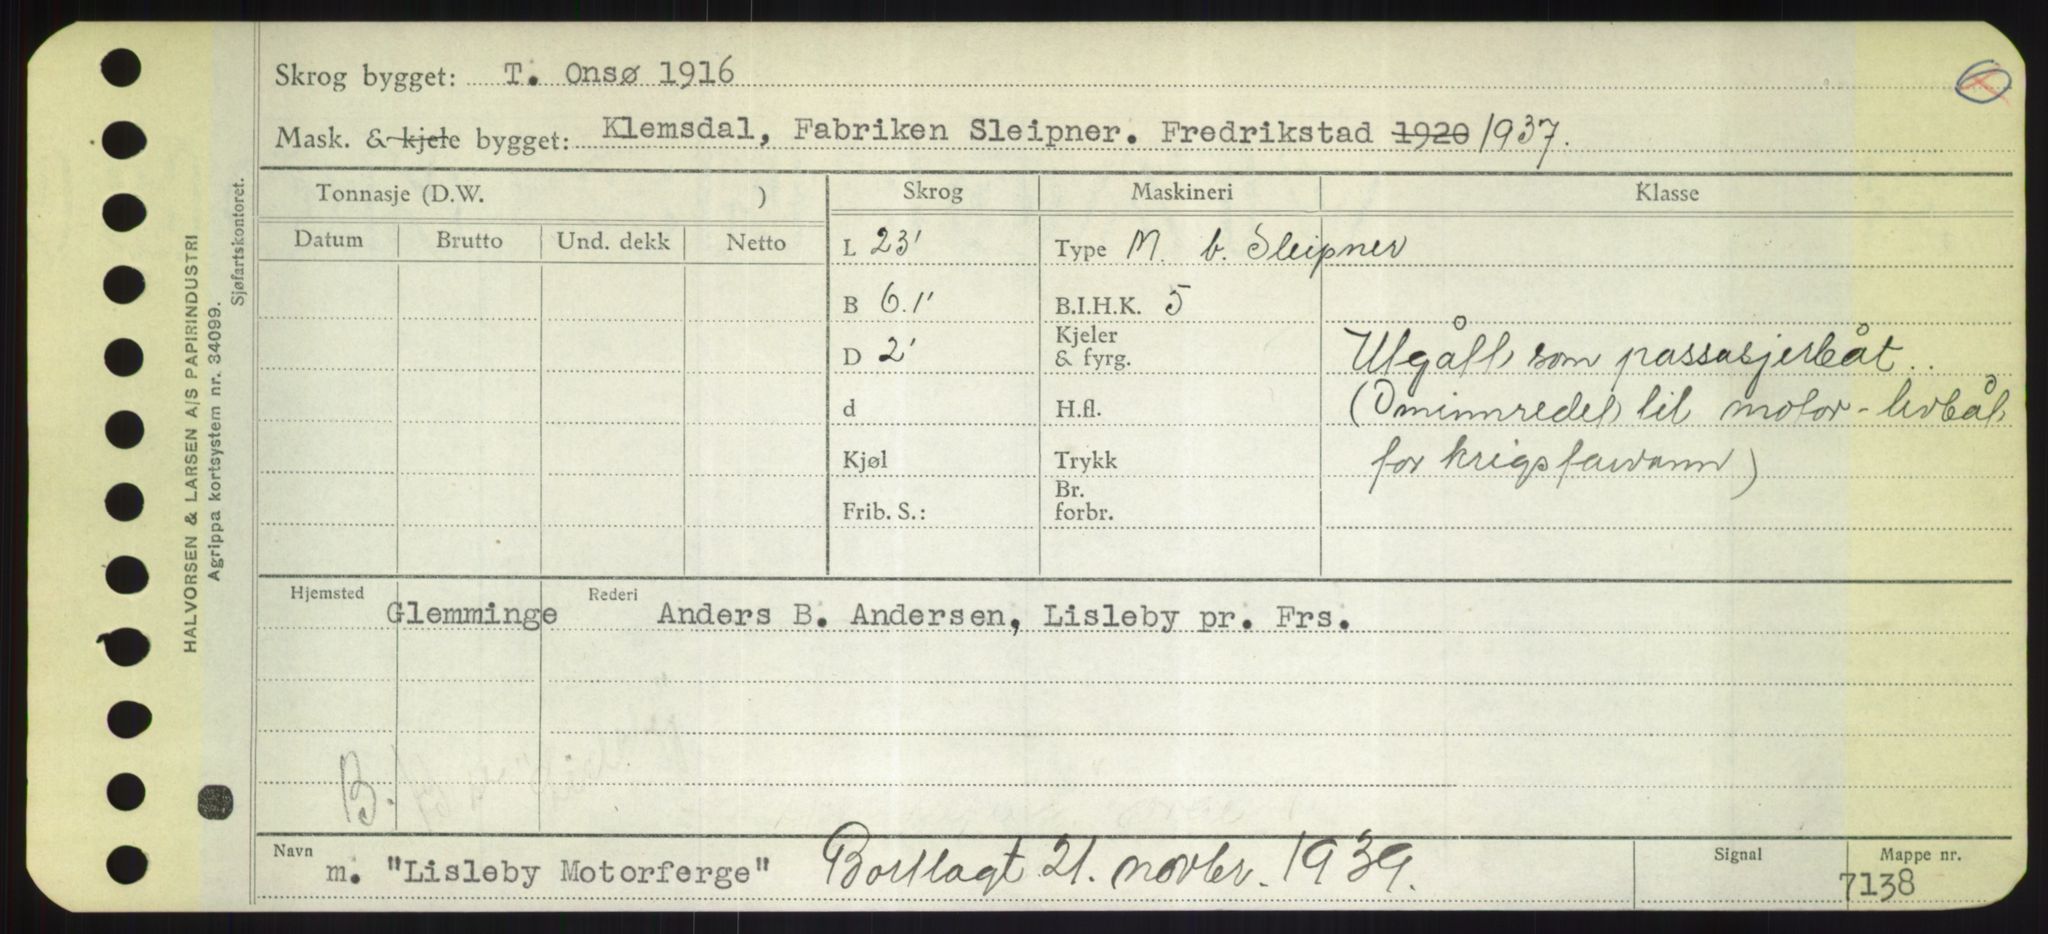 Skrog bygget: T. Onsø 1916
Mask. & kjele bygget: Klemsdal, Fabriken Sleipner. Fredrikstad 1920 1937.
Tonnasje (D.W. ) Skrog Maskineri Klasse
Datum Brutto Und. dekk Netto L 23' Type M. b. Sleipner
B 6.1' B.I.H.K. 5
D 2' Kjeler & fyrg. Utgått som passasjerbåt.
d H.fl. (Ominnredet til motor-livbåt
Kjøl Trykk for krigsfarvann)
Frib. S.: Br. forbr.
Hjemsted Glemminge Rederi Anders B. Andersen, Lisleby pr. Frs.
B.
Navn m. "Lisleby Motorferge" Bortlagt 21. novbr. 1939. Signal Mappe nr. 7138
HALVORSEN & LARSEN A/S PAPIRINDUSTRI
Agrippa kortsystem nr. 34099.
Sjøfartskontoret.